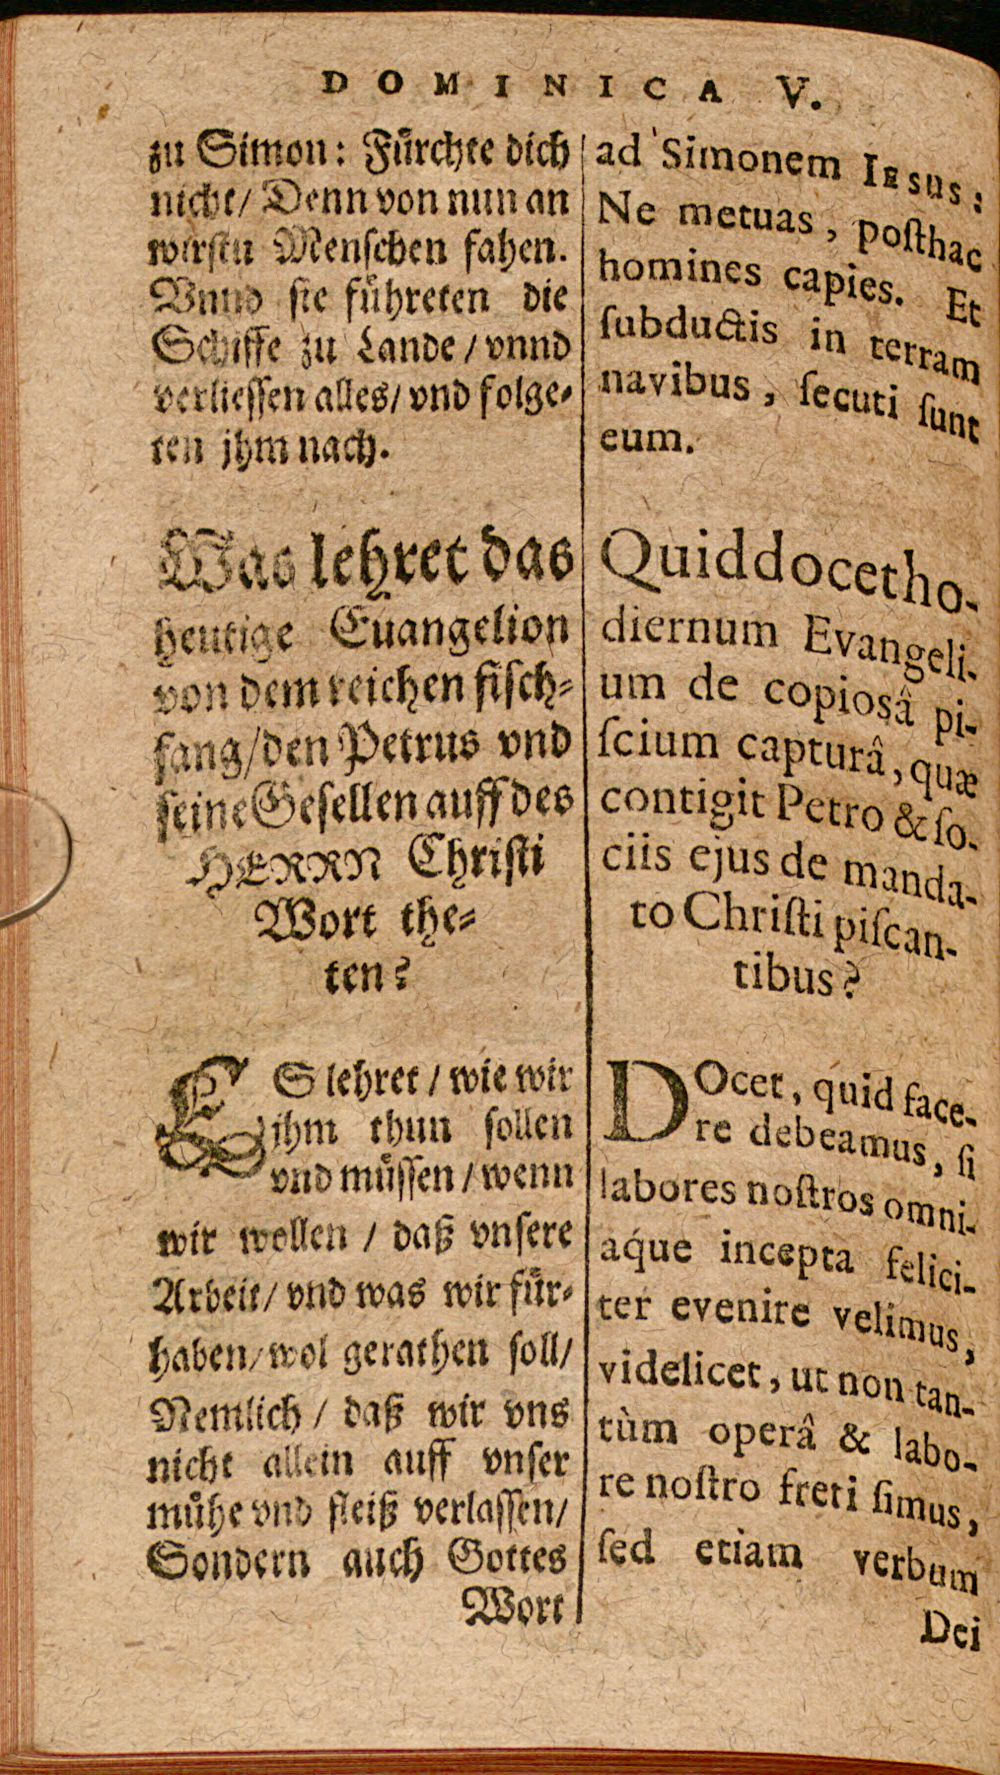 DOMINICA V.
zu Simon: Fürchte dich
nicht/ Denn von nun an
wirstu Menschen fahen.
Vnnd sie führeten die
Schiffe zu Lande/ vnnd
verliessen alles/ vnd folge-
ten jhm nach.
Was lehret das
heutige Euangelion
von dem reichen fisch-
fang/ den Petrus vnd
seine Gesellen auff des
HERRN Christi
Wort the-
ten?
ES lehret/ wie wir
jhm thun sollen
vnd müssen/ wenn
wir wollen/ daß vnsere
Arbeit/ vnd was wir für-
haben/ wol gerathen soll/
Nemlich/ daß wir vns
nicht allein auff vnser
mühe vnd fleiß verlassen/
Sondern auch Gottes
Wort
ad Simonem IESUS:
Ne metuas, posthac
homines capies. Et
subductis in terram
navibus, secuti sunt
eum.
Quid docet ho-
diernum Evangeli-
um de copiosâ pi-
scium capturâ, quæ
contigit Petro & so-
ciis ejus de manda-
to Christi piscan-
tibus?
DOcet, quid face-
re debeamus, si
labores nostros omni-
aq́ue incepta felici-
ter evenire velimus,
videlicet, ut non tan-
tùm operâ & labo-
re nostro freti simus,
sed etiam verbum
Dei